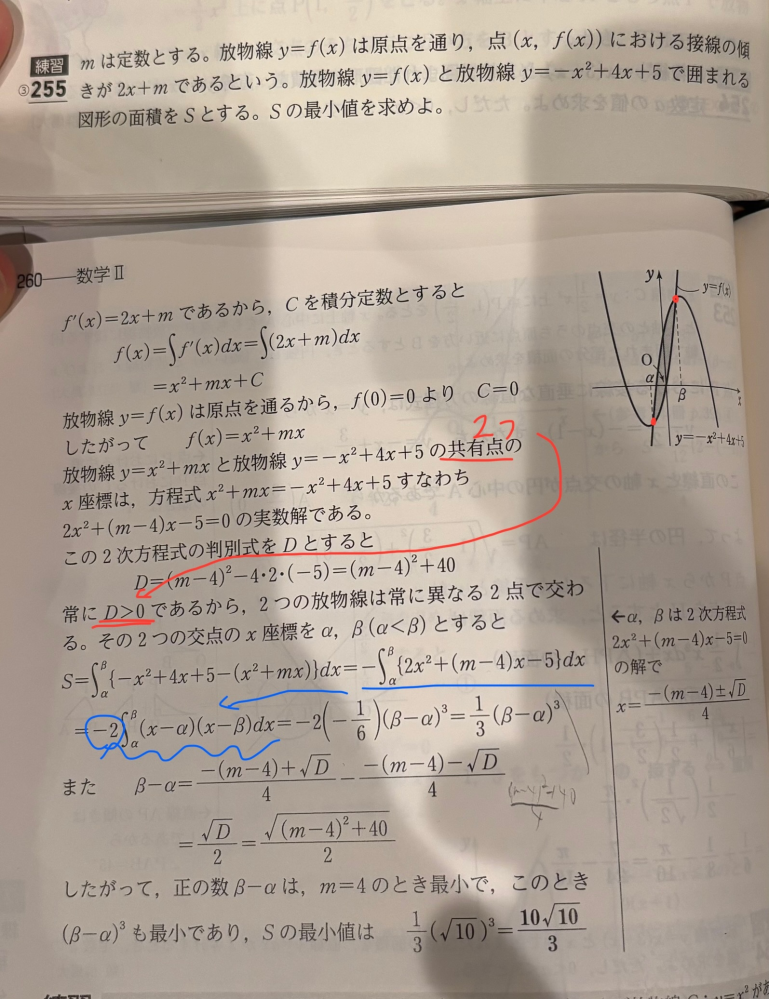 練習 mは定数とする。放物線 y=f(x) は原点を通り，点 (x, f(x)) における接線の傾
③255 きが 2x+m であるという。放物線 y=f(x) と放物線 y=-x²+4x+5 で囲まれる
図形の面積をSとする。Sの最小値を求めよ。
260——数学Ⅱ
f'(x)=2x+m であるから，Cを積分定数とすると
f(x)=∫f'(x)dx=∫(2x+m)dx
=x²+mx+C
放物線 y=f(x) は原点を通るから，f(0)=0 より C=0
したがって f(x)=x²+mx
2つ
放物線 y=x²+mx と放物線 y=-x²+4x+5 の共有点の
x座標は，方程式 x²+mx=-x²+4x+5 すなわち
2x²+(m-4)x-5=0 の実数解である。
この2次方程式の判別式をDとすると
D=(m-4)²-4・2・(-5)=(m-4)²+40
常に D>0 であるから，2つの放物線は常に異なる2点で交わ
る。その2つの交点のx座標を α，β(α<β) とすると
S=∫_α^β{-x²+4x+5-(x²+mx)}dx=-∫_α^β{2x²+(m-4)x-5}dx
=-2∫_α^β(x-α)(x-β)dx=-2(-1/6)(β-α)³=1/3(β-α)³
また β-α=(-(m-4)+√D)/4-(-(m-4)-√D)/4
=√D/2=√((m-4)²+40)/2
したがって，正の数 β-α は，m=4 のとき最小で，このとき
(β-α)³ も最小であり，Sの最小値は 1/3(√10)³=10√10/3
y
y=f(x)
O
α
β
x
y=-x²+4x+5
←α，βは2次方程式
2x²+(m-4)x-5=0
の解で
x=(-(m-4)±√D)/4